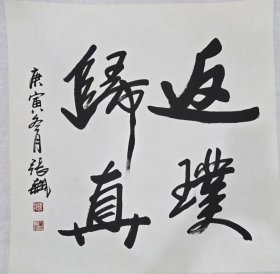 返璞
歸真
庚寅冬月張